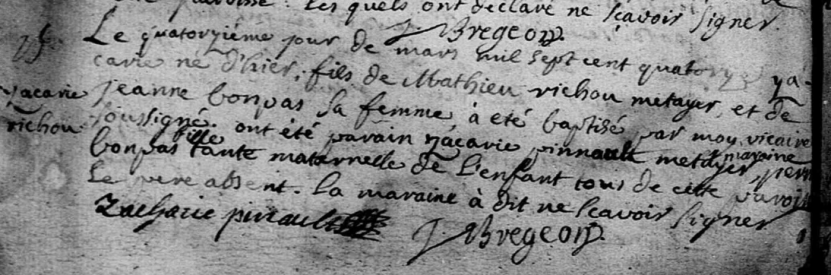 les quels ont declaré ne sçavoir signer.
J. Bregeon
Le quatorziéme jour de mars mil sept cent quatorze ya-
carie né d'hier, fils de Mathieu richou métayer, et de
yacarie
richou
jeanne bonpas sa femme à été baptisé par moy vicaire
soussigné. ont été parain yacarie pinnault metayer, maraine
bonpas fille tante maternelle de L'enfant tous de cette
Le pere absent. La maraine à dit ne sçavoir signer
Zacharie pinault
J. Bregeon